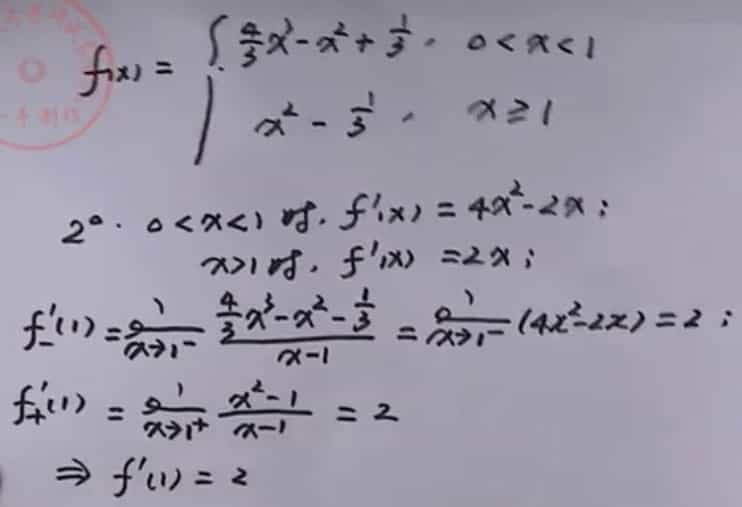 f(x) = { 4/3 x³ - x² + 1/3, 0 < x < 1
x² - 1/3, x ≥ 1
2°. 0 < x < 1 时, f'(x) = 4x² - 2x;
x > 1 时, f'(x) = 2x;
f'₋(1) = lim_{x→1⁻} (4/3 x³ - x² - 1/3)/(x-1) = lim_{x→1⁻} (4x² - 2x) = 2;
f'₊(1) = lim_{x→1⁺} (x² - 1)/(x - 1) = 2
⇒ f'(1) = 2